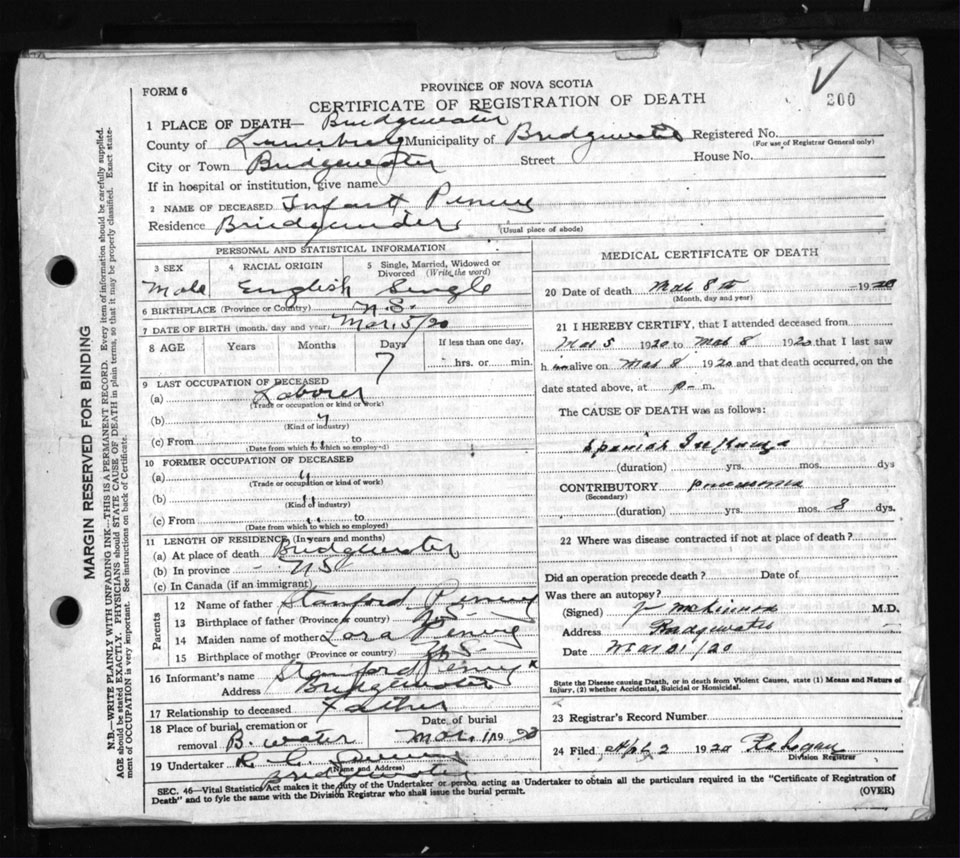 FORM 6
PROVINCE OF NOVA SCOTIA
CERTIFICATE OF REGISTRATION OF DEATH
200
1 PLACE OF DEATH— Bridgewater
County of Lunenburg Municipality of Bridgewater Registered No.
(For use of Registrar General only)
City or Town Bridgewater Street House No.
If in hospital or institution, give name
2 NAME OF DECEASED Infant
Residence Bridgewater
(Usual place of abode)
PERSONAL AND STATISTICAL INFORMATION
3 SEX 4 RACIAL ORIGIN 5 Single, Married, Widowed or Divorced (Write the word)
Male English Single
6 BIRTHPLACE (Province or Country) N.S.
7 DATE OF BIRTH (month, day and year) Mar. 5/20
8 AGE Years Months Days If less than one day,
7 hrs. or min.
9 LAST OCCUPATION OF DECEASED
(a) Laborer
(Trade or occupation or kind of work)
(b) "
(Kind of industry)
(c) From " to
(Date from which to which so employed)
10 FORMER OCCUPATION OF DECEASED
(a) "
(Trade or occupation or kind of work)
(b) "
(Kind of industry)
(c) From " to
(Date from which to which so employed)
11 LENGTH OF RESIDENCE (In years and months)
(a) At place of death Bridgewater
(b) In province NS
(c) In Canada (if an immigrant)
Parents
12 Name of father Stanford
13 Birthplace of father (Province or country) NS
14 Maiden name of mother
15 Birthplace of mother (Province or country) N.S.
16 Informant's name Stanford
Address Bridgewater
17 Relationship to deceased Father
18 Place of burial, cremation or removal B. water Date of burial Mar. 1920
19 Undertaker
(Name and Address)
Bridgewater
MEDICAL CERTIFICATE OF DEATH
20 Date of death Mar 8th 1920
(Month, day and year)
21 I HEREBY CERTIFY, that I attended deceased from
Mar 5 1920 to Mar 8 1920 that I last saw
h alive on Mar 8 1920 and that death occurred, on the
date stated above, at p m.
The CAUSE OF DEATH was as follows:
Spanish Influenza
(duration) yrs. mos. dys
CONTRIBUTORY pneumonia
(Secondary)
(duration) yrs. mos. 8 dys.
22 Where was disease contracted if not at place of death?
Did an operation precede death? Date of
Was there an autopsy?
(Signed) McKinnon M.D.
Address Bridgewater
Date Mar 31/20
State the Disease causing Death, or in death from Violent Causes, state (1) Means and Nature of
Injury, (2) whether Accidental, Suicidal or Homicidal.
23 Registrar's Record Number
24 Filed Apl 2 1920
Division Registrar
SEC. 46—Vital Statistics Act makes it the duty of the Undertaker or person acting as Undertaker to obtain all the particulars required in the "Certificate of Registration of
Death" and to fyle the same with the Division Registrar who shall issue the burial permit. (OVER)
MARGIN RESERVED FOR BINDING
N.B.—WRITE PLAINLY WITH UNFADING INK—THIS IS A PERMANENT RECORD. Every item of information should be carefully supplied.
AGE should be stated EXACTLY. PHYSICIANS should STATE CAUSE OF DEATH in plain terms, so that it may be properly classified. Exact state-
ment of OCCUPATION is very important. See instructions on back of Certificate.